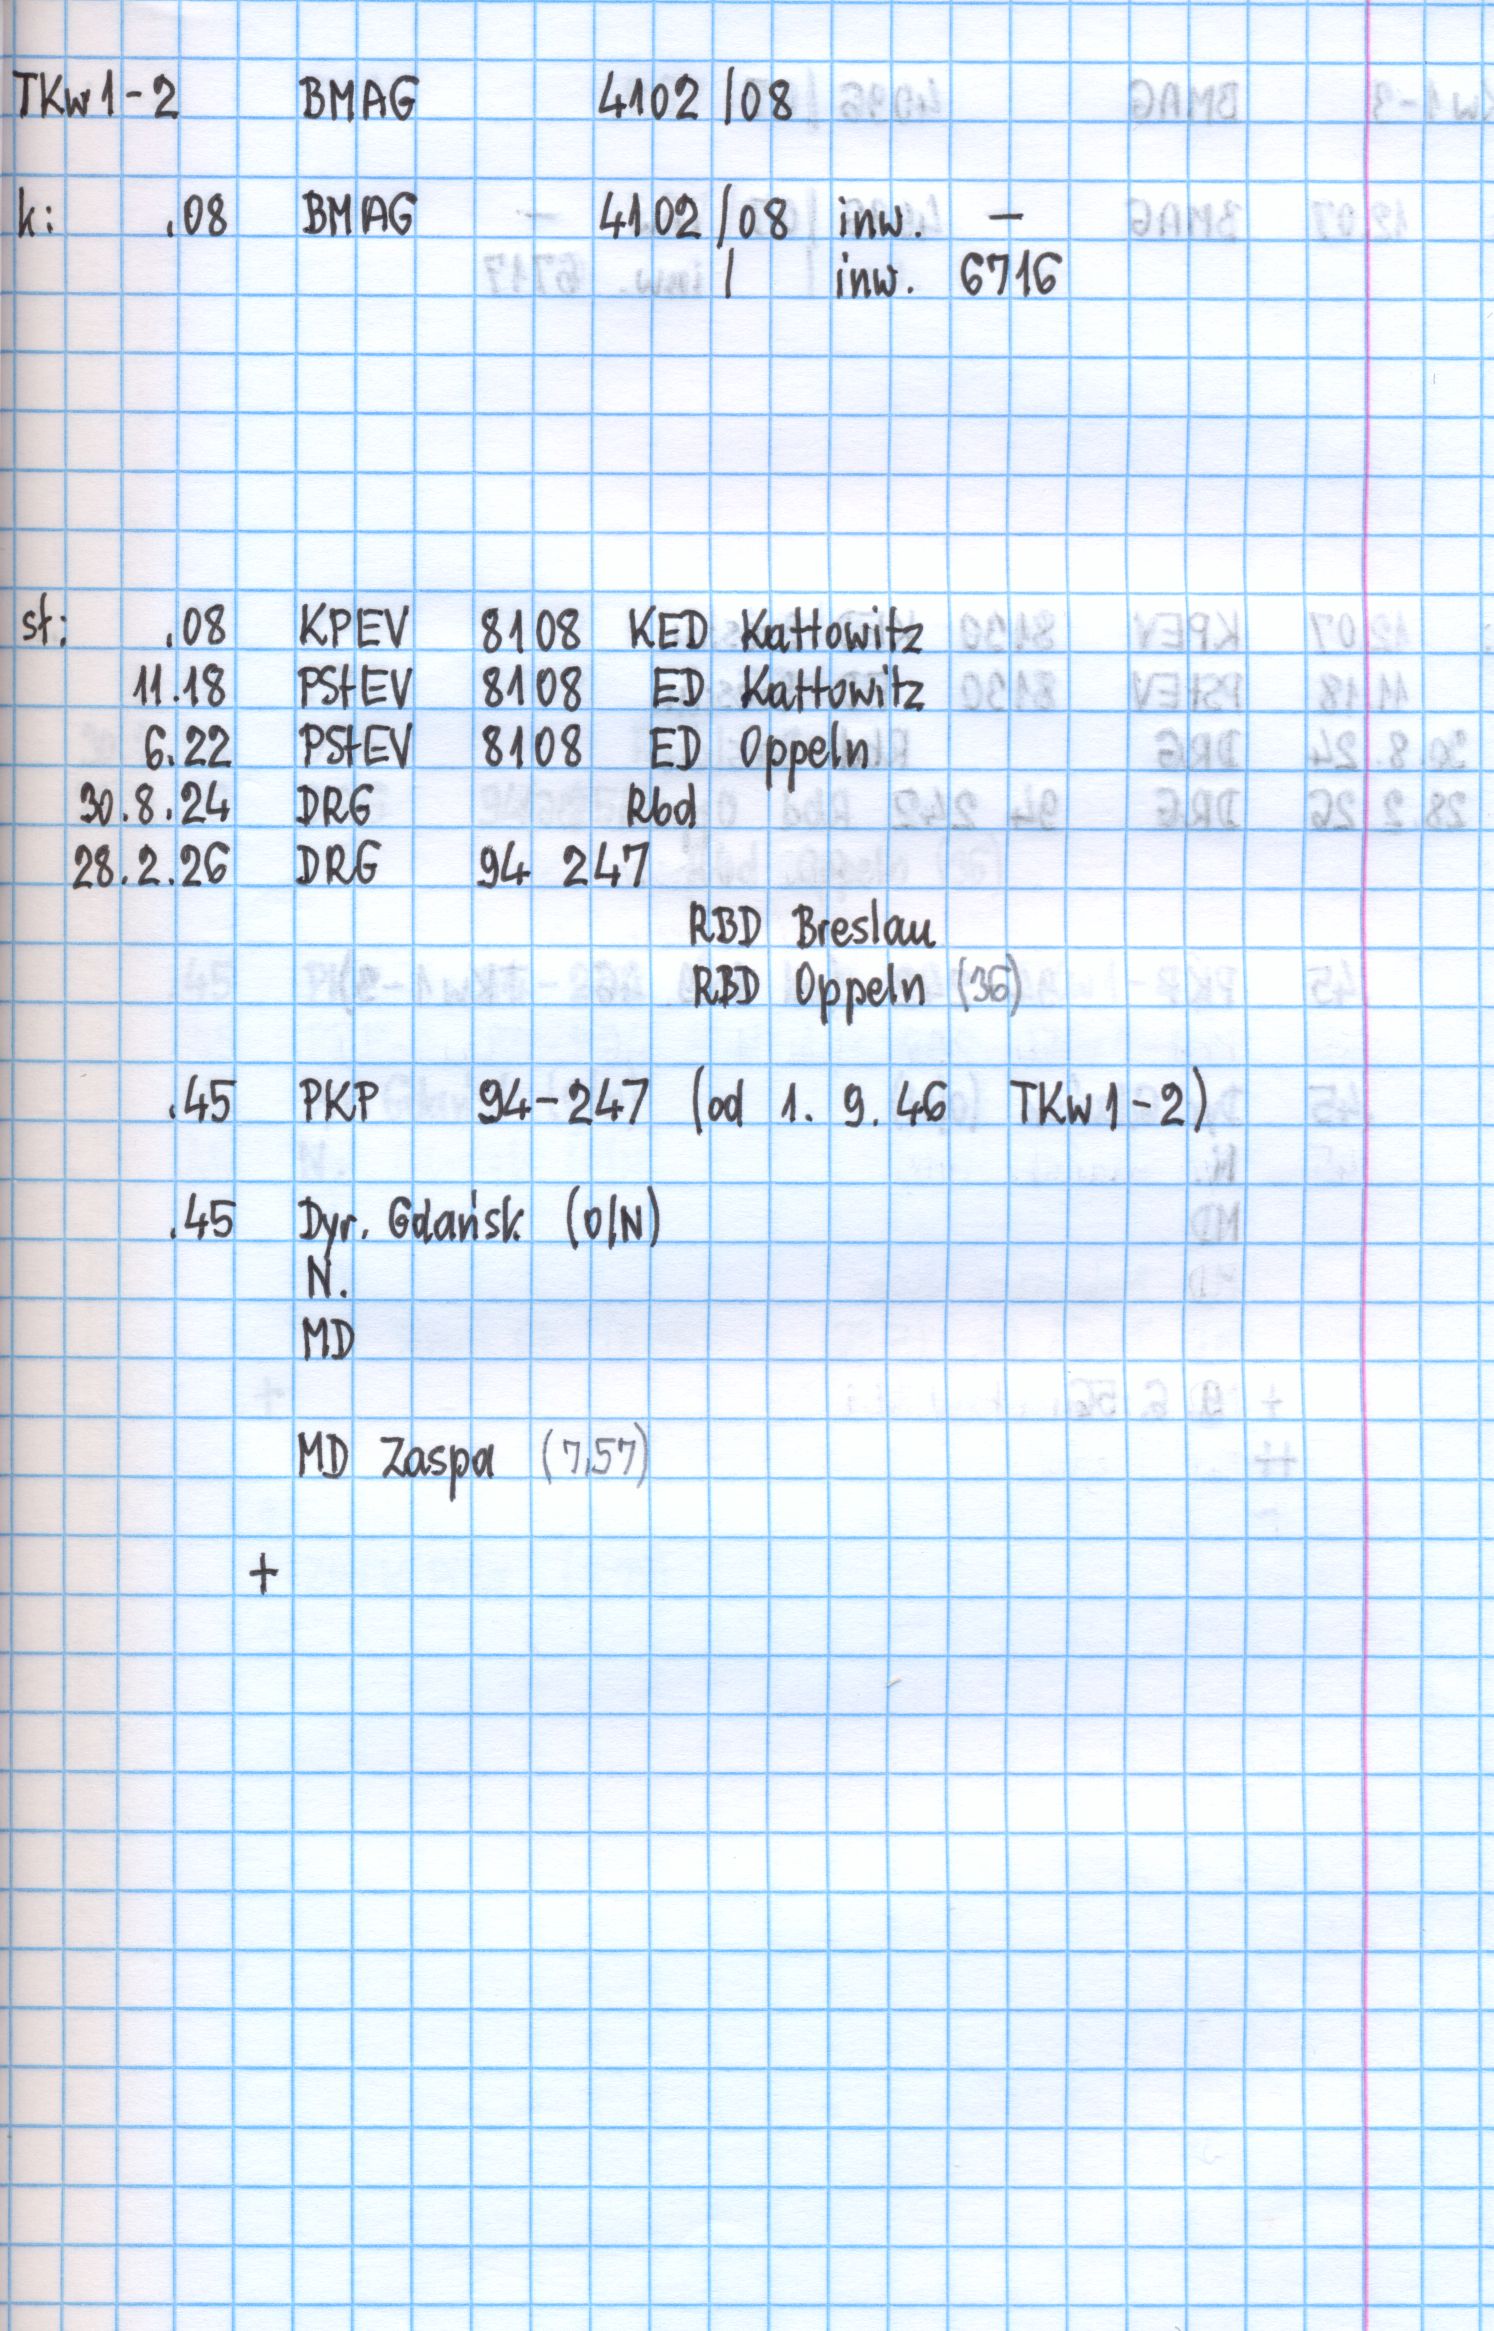 TKw1-2 BMAG 4102/08
k: .08 BMAG 4102/08 inw. -
/ inw. 6716
st: .08 KPEV 8108 KED Kattowitz
11.18 PStEV 8108 ED Kattowitz
6.22 PStEV 8108 ED Oppeln
30.8.24 DRG Rbd
28.2.26 DRG 94 247
RBD Breslau
RBD Oppeln (36)
.45 PKP 94-247 (od 1.9.46 TKw1-2)
.45 Dyr. Gdańsk (O/N)
N.
MD
MD Zaspa (7,57)
+